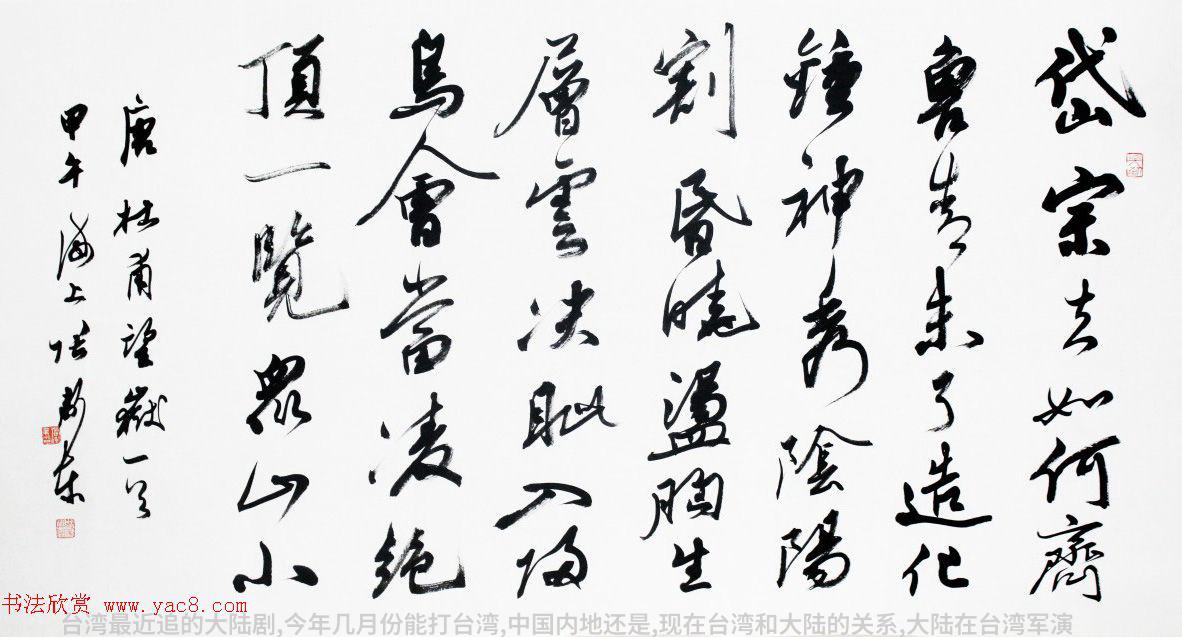 岱宗夫如何齊
魯青未了造化
鍾神秀陰陽
割昏曉盪胸生
層雲决眦入歸
鳥會當凌絕
頂一覽眾山小
唐杜甫望嶽一首
甲午海上張東
书法欣赏 www.yac8.com
台湾最近追的大陆剧,今年几月份能打台湾,中国内地还是,现在台湾和大陆的关系,大陆在台湾军演